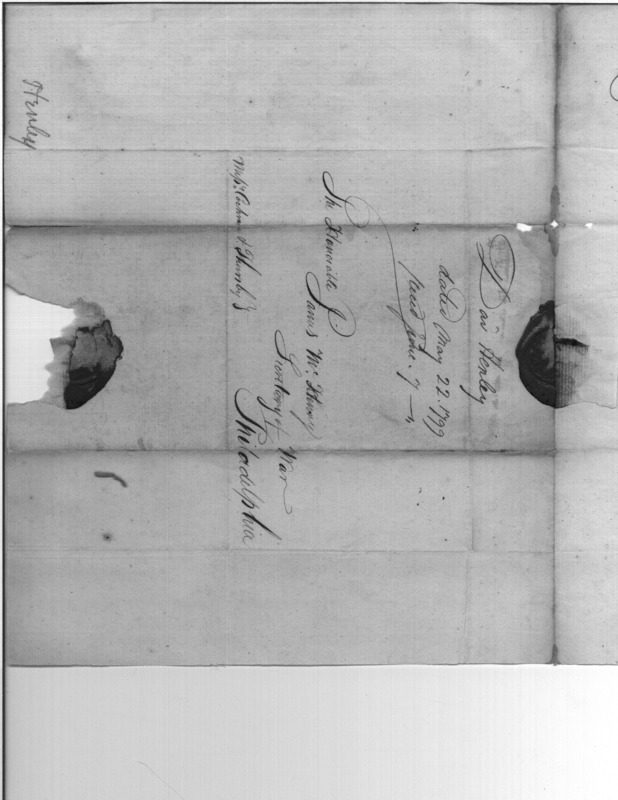 Dav Henley
dated May 22. 1799
recd June. 7
The Honorable James Mc.Henry
Secretary of War
Philadelphia
Messrs.
Henley